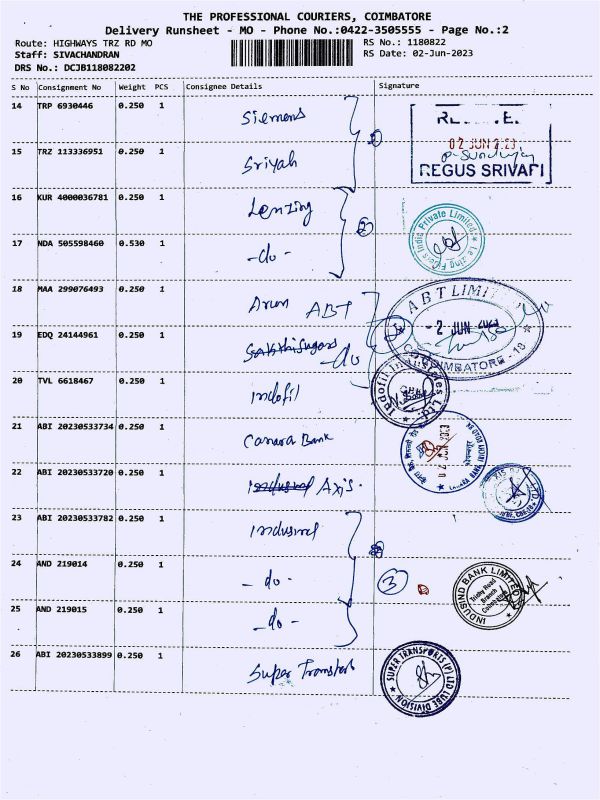 THE PROFESSIONAL COURIERS, COIMBATORE
Delivery Runsheet - MO - Phone No.:0422-3505555 - Page No.:2
Route: HIGHWAYS TRZ RD MO
RS No.: 1180822
Staff: SIVACHANDRAN
RS Date: 02-Jun-2023
DRS No.: DCJB118082202
S No Consignment No Weight PCS Consignee Details Signature
14 TRP 6930446 0.250 1 Siemens
02 JUN 2023
REGUS SRIVARI
15 TRZ 113336951 0.250 1 Sriyah
16 KUR 4000036781 0.250 1 Lenzing
2
17 NDA 505598460 0.530 1 -do-
18 MAA 299076493 0.250 1 Arun ABT
ABT LIMITED
- 2 JUN 2023
COIMBATORE - 18
19 EDQ 24144961 0.250 1 Sakthi Sugars -do-
20 TVL 6618467 0.250 1 Indofil
21 ABI 20230533734 0.250 1 Canara Bank
22 ABI 20230533720 0.250 1 Indusind Axis.
23 ABI 20230533782 0.250 1 Indusind
24 AND 219014 0.250 1 -do-
3
INDUSIND BANK LIMITED
Trichy Road
Branch
Coimbatore
25 AND 219015 0.250 1 -do-
26 ABI 20230533899 0.250 1 Super Transports
SUPER TRANSPORTS (P) LTD LUBE DIVISION